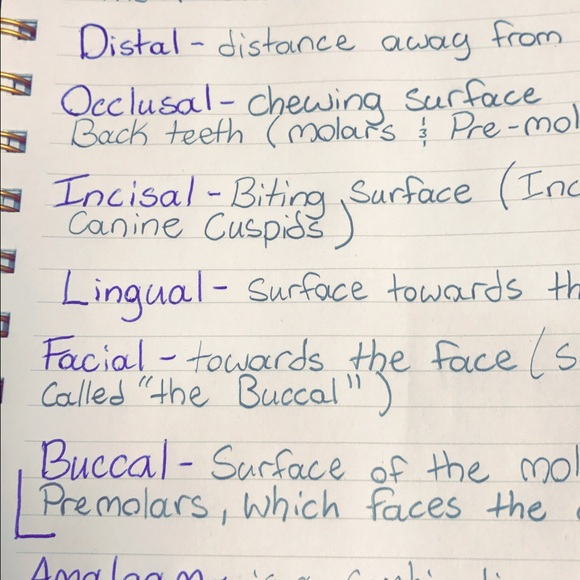 Distal - distance away from
Occlusal - chewing surface
Back teeth (molars & Pre-mol
Incisal - Biting Surface (Inc
Canine Cuspids)
Lingual - Surface towards th
Facial - towards the face (S
Called "the Buccal")
Buccal - Surface of the mol
Premolars, which faces the
Amalgam